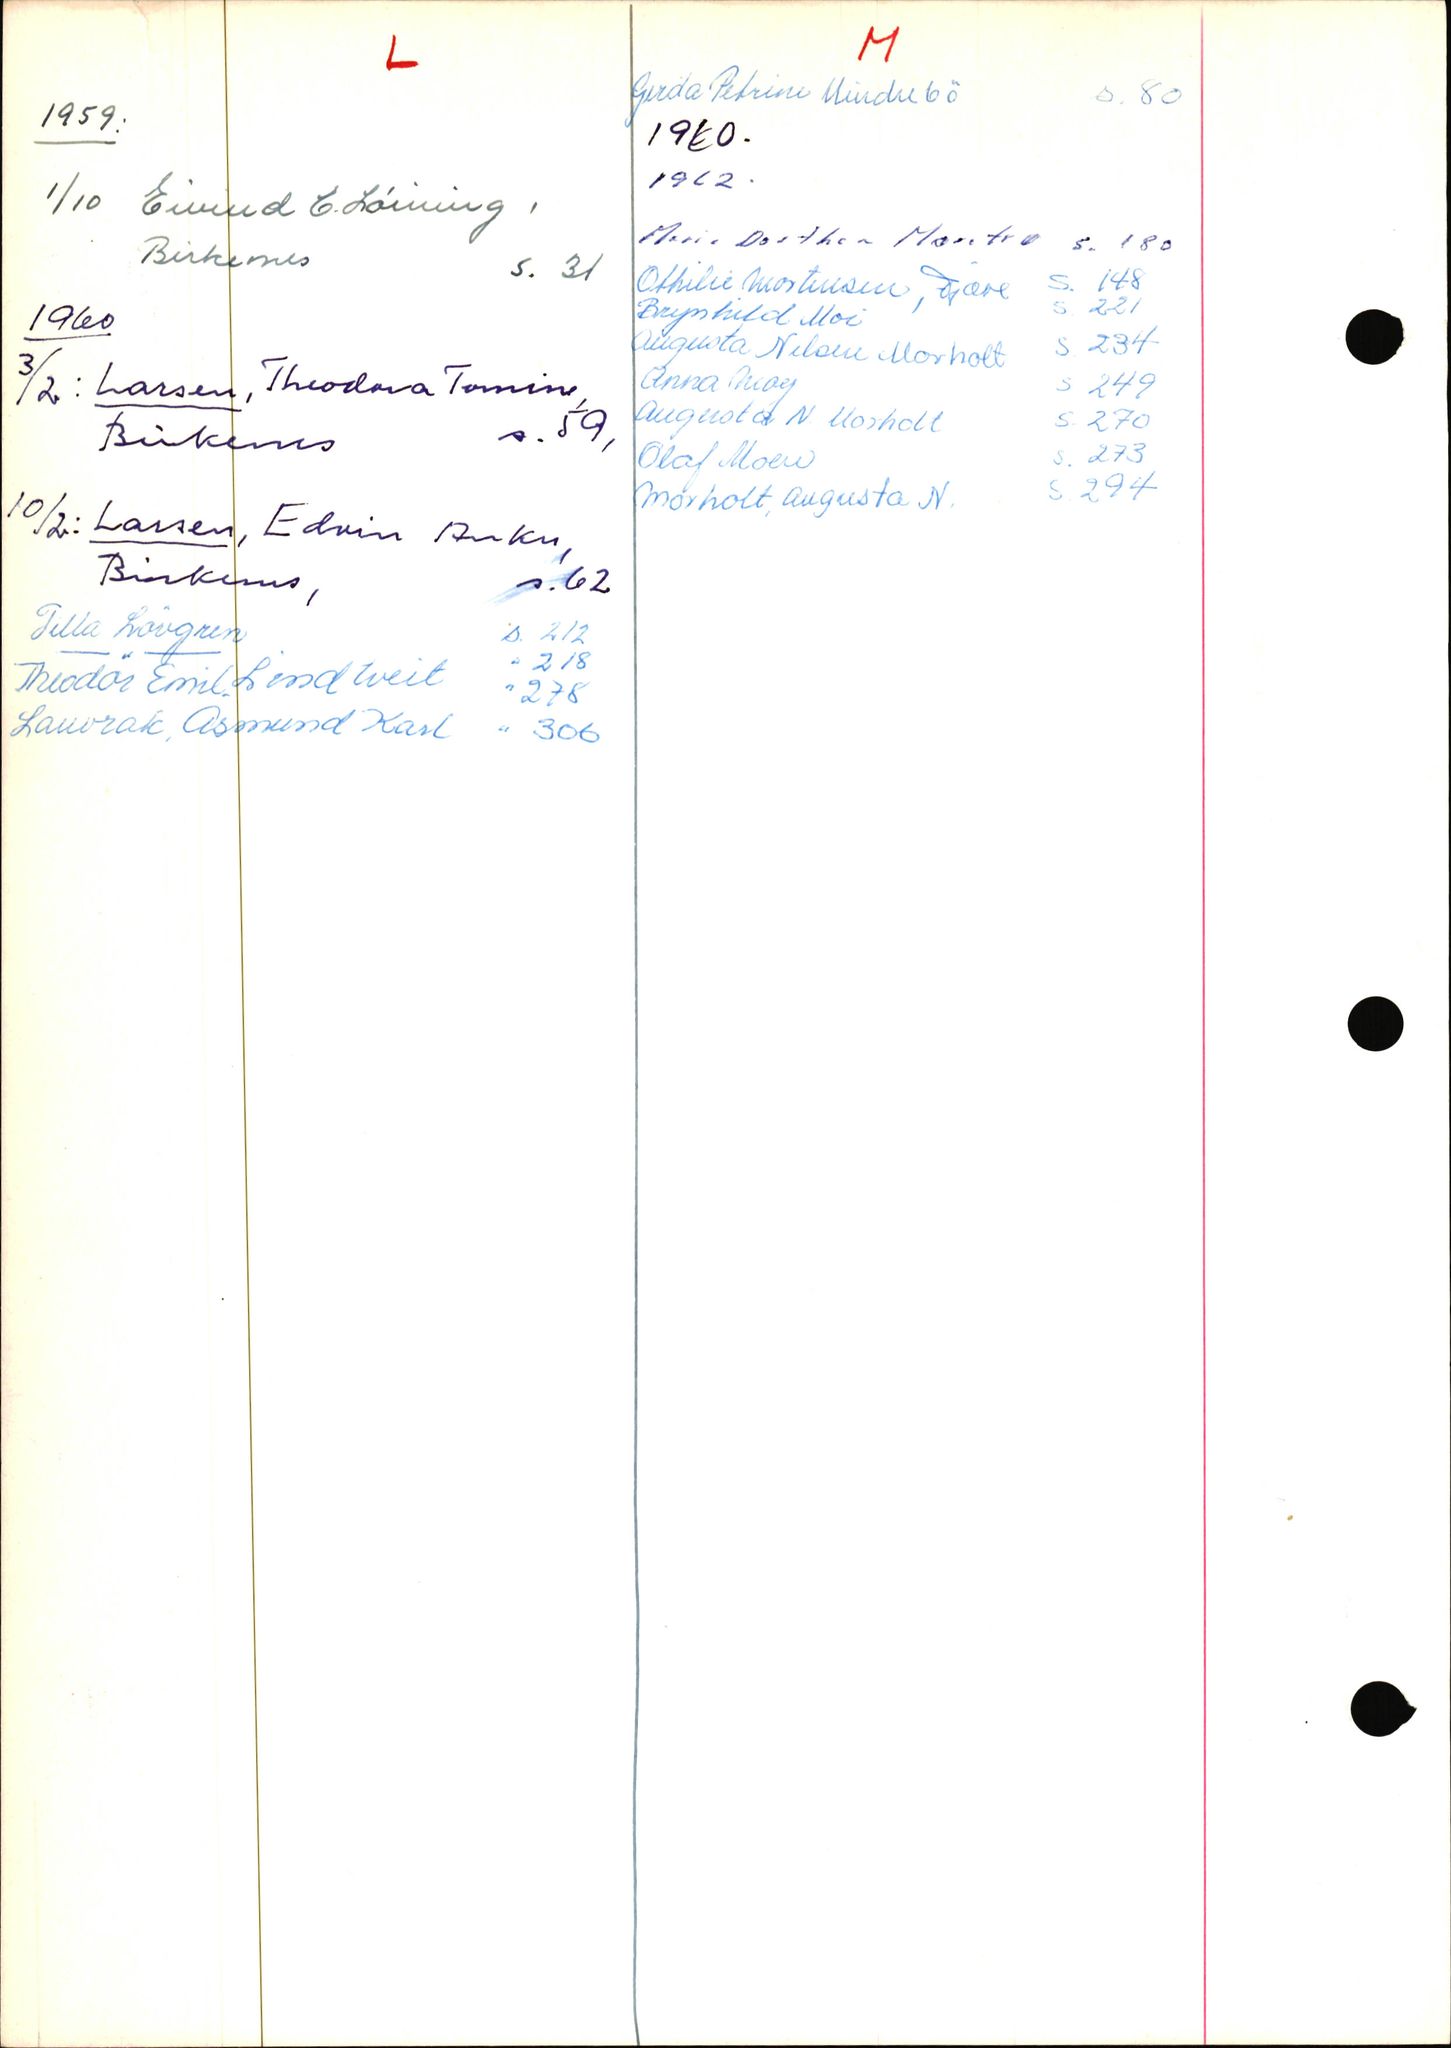 L
1959:
1/10 Eivind E. Löining,
Birkenes s. 31
1960
3/2: Larsen, Theodora Tomine,
Birkenes s. 59,
10/2: Larsen, Edvin Anker,
Birkenes, s. 62
Tilla Lövgren s. 212
" 218
Theodor Emil Lindtveit " 278
Lauvrak, Asmund Karl " 306
M
Gerda Petrine Mindrebö s. 80
1960.
1962.
Marie Dorthea s. 180
Othilie Mortensen, Fjære s. 148
Brynhild Moi s 221
Augusta Nilsen Morholt s. 234
Anna Moy s 249
Augusta N Morholt s. 270
Olaf Moen s. 273
Morholt, Augusta N. s. 294